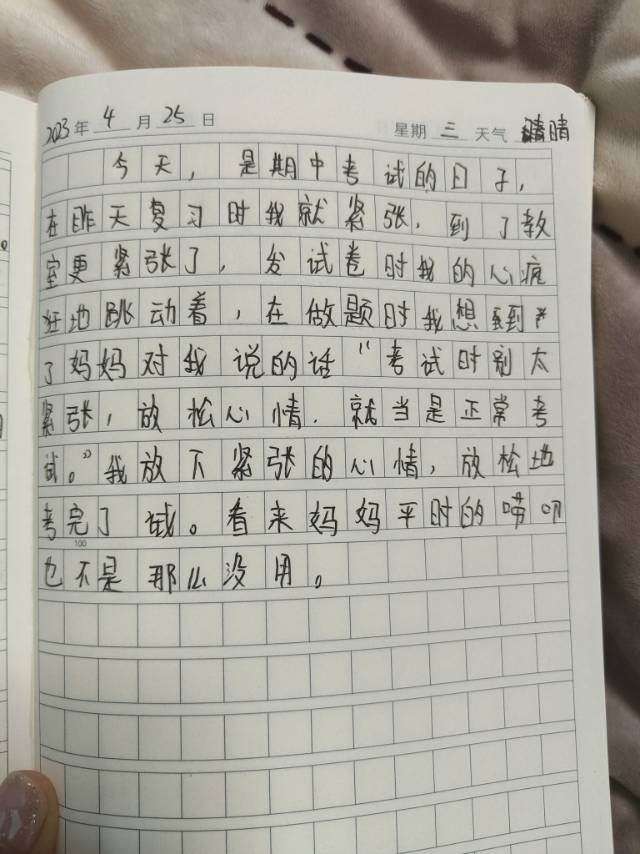 2023年4月25日 星期三 天气 晴
今天，是期中考试的日子，
在昨天复习时我就紧张，到了教
室更紧张了，发试卷时我的心疯
狂地跳动着，在做题时我想到
了妈妈对我说的话“考试时别太
紧张，放松心情，就当是正常考
试。”我放下紧张的心情，放松地
考完了试。看来妈妈平时的唠叨
也不是那么没用。
100